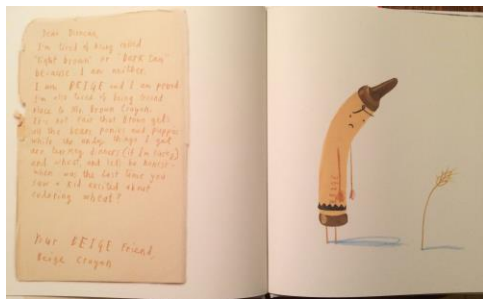 Dear Duncan,
I'm tired of being called
"light brown" or "Dark tan"
because I am neither.
I am BEIGE and I am proud.
I'm also tired of being second
place to the Brown Crayon.
It's not fair that Brown gets
all the bears, ponies and puppies
while the only things I get
are turkey dinners (if I'm lucky)
and wheat, and let's be honest-
when was the last time you
saw a kid excited about
coloring wheat?
Your BEIGE friend,
Beige Crayon